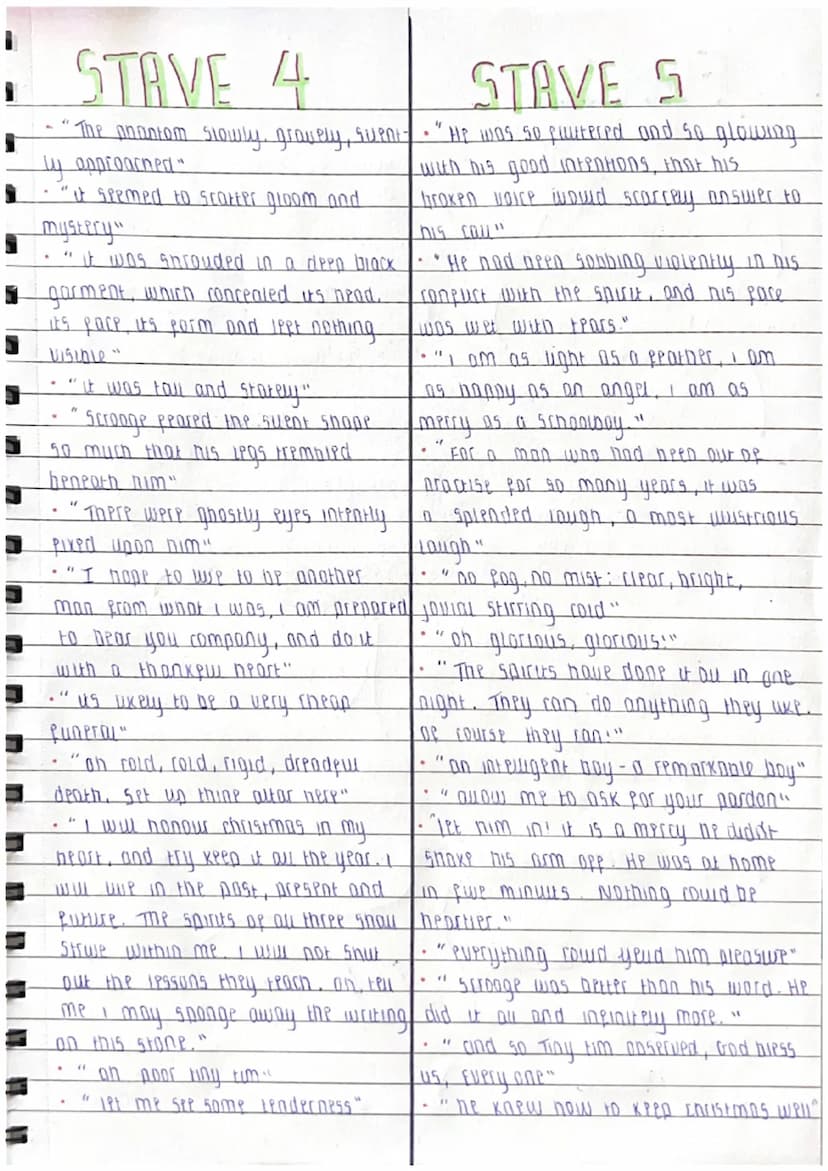 STAVE 4
· "The phantom slowly, gravely, silent-
ly approached"
· "it seemed to scatter gloom and
mystery"
· "it was shrouded in a deep black
garment, which concealed its head,
its face, its form and left nothing
visible"
· "it was tall and stately"
· "Scrooge feared the silent shape
so much that his legs trembled
beneath him"
· "There were ghostly eyes intently
fixed upon him"
· "I hope to live to be another
man from what I was, I am prepared
to bear you company, and do it
with a thankful heart"
· "its likely to be a very cheap
funeral"
· "oh cold, cold, rigid, dreadful
death, set up thine altar here"
· "I will honour christmas in my
heart, and try keep it all the year. I
will live in the past, present and
future. The spirits of all three shall
strive within me. I will not shut
out the lessons they teach. oh, tell
me I may sponge away the writing
on this stone."
· "oh poor tiny tim"
· "let me see some tenderness"
STAVE 5
· "He was so fluttered and so glowing
with his good intentions, that his
broken voice would scarcely answer to
his call"
· "He had been sobbing violently in his
conflict with the spirit, and his face
was wet with tears."
· "I am as light as a feather, I am
as happy as an angel, I am as
merry as a schoolboy."
· "For a man who had been out of
practise for so many years, it was
a splended laugh, a most illustrious
laugh"
· "no fog, no mist; clear, bright,
jovial stirring cold"
· "oh glorious, glorious!"
· "The spirits have done it all in one
night. They can do anything they like.
of course they can!"
· "an intelligent boy - a remarkable boy"
· "allow me to ask for your pardon"
· "let him in! it is a mercy he didn't
shake his arm off. He was at home
in five minuts. Nothing could be
heartier."
· "everything could yeild him pleasure"
· "Scrooge was better than his word. He
did it all and infinitely more."
· "and so Tiny tim observed, God bless
us, Every one"
· "he knew how to keep christmas well"